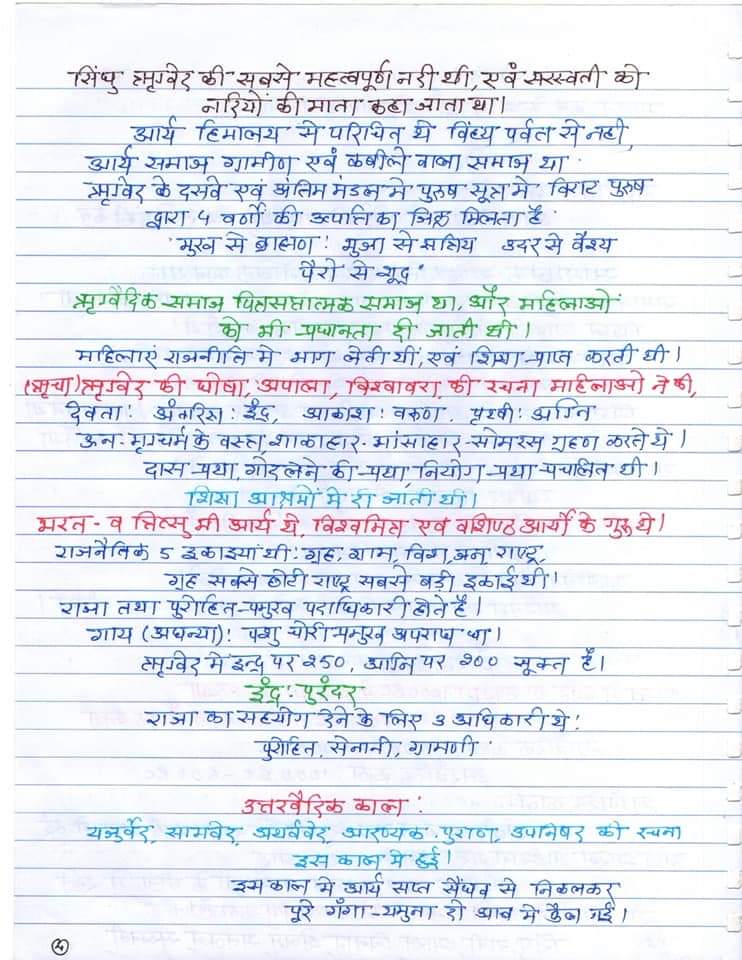 सिंधु ऋग्वेद की सबसे महत्वपूर्ण नदी थी, एवं सरस्वती को
नदियों की माता कहा जाता था।
आर्य हिमालय से परिचित थे विंध्य पर्वत से नही,
आर्य समाज ग्रामीण एवं कबीले वाला समाज था
ऋग्वेद के दसवे एवं अंतिम मंडल मे पुरुष सूक्त मे विराट पुरुष
द्वारा 4 वर्णो की उत्पत्ति का जिक्र मिलता है
मुख से ब्राह्मण: भुजा से क्षत्रिय उदर से वैश्य
पैरो से शूद्र:
ऋग्वैदिक समाज पितृसत्तात्मक समाज था, और महिलाओ
को भी प्रधानता दी जाती थी।
महिलाएं राजनीति मे भाग लेती थीं, एवं शिक्षा प्राप्त करती थी।
(ऋचा) ऋग्वेद की घोषा, अपाला, विश्वावरा, की रचना महिलाओ ने की,
देवता: अंतरिक्ष: इंद्र, आकाश: वरुण, पृथ्वी: अग्नि
ऊन: मृगचर्म के वस्त्र, शाकाहार-मांसाहार-सोमरस ग्रहण करते थे।
दास-प्रथा, गोद लेने की-प्रथा, नियोग-प्रथा प्रचलित थी।
शिक्षा आश्रमों मे दी जाती थी।
भरत- व त्रित्सु भी आर्य थे, विश्वमित्र एवं वशिष्ठ आर्यो के गुरु थे।
राजनैतिक 5 इकाइयां थी: ग्रह, ग्राम, विश, जन, राष्ट्र,
ग्रह सबसे छोटी राष्ट्र सबसे बड़ी इकाई थी।
राजा तथा पुरोहित प्रमुख पदाधिकारी होते है।
गाय (अघन्या): पशु चोरी प्रमुख अपराध था।
ऋग्वेद मे इन्द्र पर 250, अग्नि पर 200 सूक्त है।
इंद्र: पुरंदर
राजा का सहयोग देने के लिए 3 अधिकारी थे:
पुरोहित, सेनानी, ग्रामणी
उत्तरवैदिक काल:
यजुर्वेद, सामवेद, अथर्ववेद, आरण्यक, पुराण, उपनिषद की रचना
इस काल मे हुई।
इस काल मे आर्य सप्त सैंधव से निकलकर
पूरे गंगा-यमुना दो आब मे फैल गई।
4